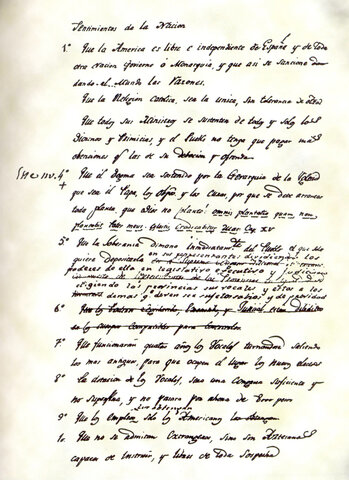 Sentimientos de la Nacion
1.º Que la America es libre e independiente de España y de toda
otra Nacion, Govierno ô Monarquia, y que asi se sancione, dan
dando al Mundo las Razones.
Que la Religion Catolica, sea la unica, sin tolerancia de otra
Que todos sus Ministros se sustenten de todos y solos los
Diezmos y Primicias, y el Pueblo no tenga que pagar mas
obenciones qe las de su devocion y ofrenda.
4.º Que el Dogma sea sostenido por la Gerarquia de la Iglesia
que son el Papa, los Obispos y los Curas, por que se debe arrancar
toda planta, que Dios no plantó: omnis plantatis quam non
plantabit Pater meus Celestis Cradicabitur Mat Cap XV
5.º Que la Soberania dimana inmediatamte del Pueblo, el que solo
quiere depositarla en sus representantes dividiendo los
poderes de ella en legislativo executivo y Judiciario
eligiendo las provincias sus vocales y estos a los
demas q deven ser sujetos sabios y de providad
6.º
7.º Que funcionarán quatro años los Vocales turnandose saliendo
los mas antiguos, para que ocupen el lugar los nuevos electos
8.º La dotacion de los Vocales, será una congrua suficiente y
no superflua, y no pasará por ahora de ocho mil pesos
9.º Que los empleos solo los Americanos los
10. Que no se admitan Extrangeros, sino son Artesanos
capaces de instruir, y libres de toda sospecha